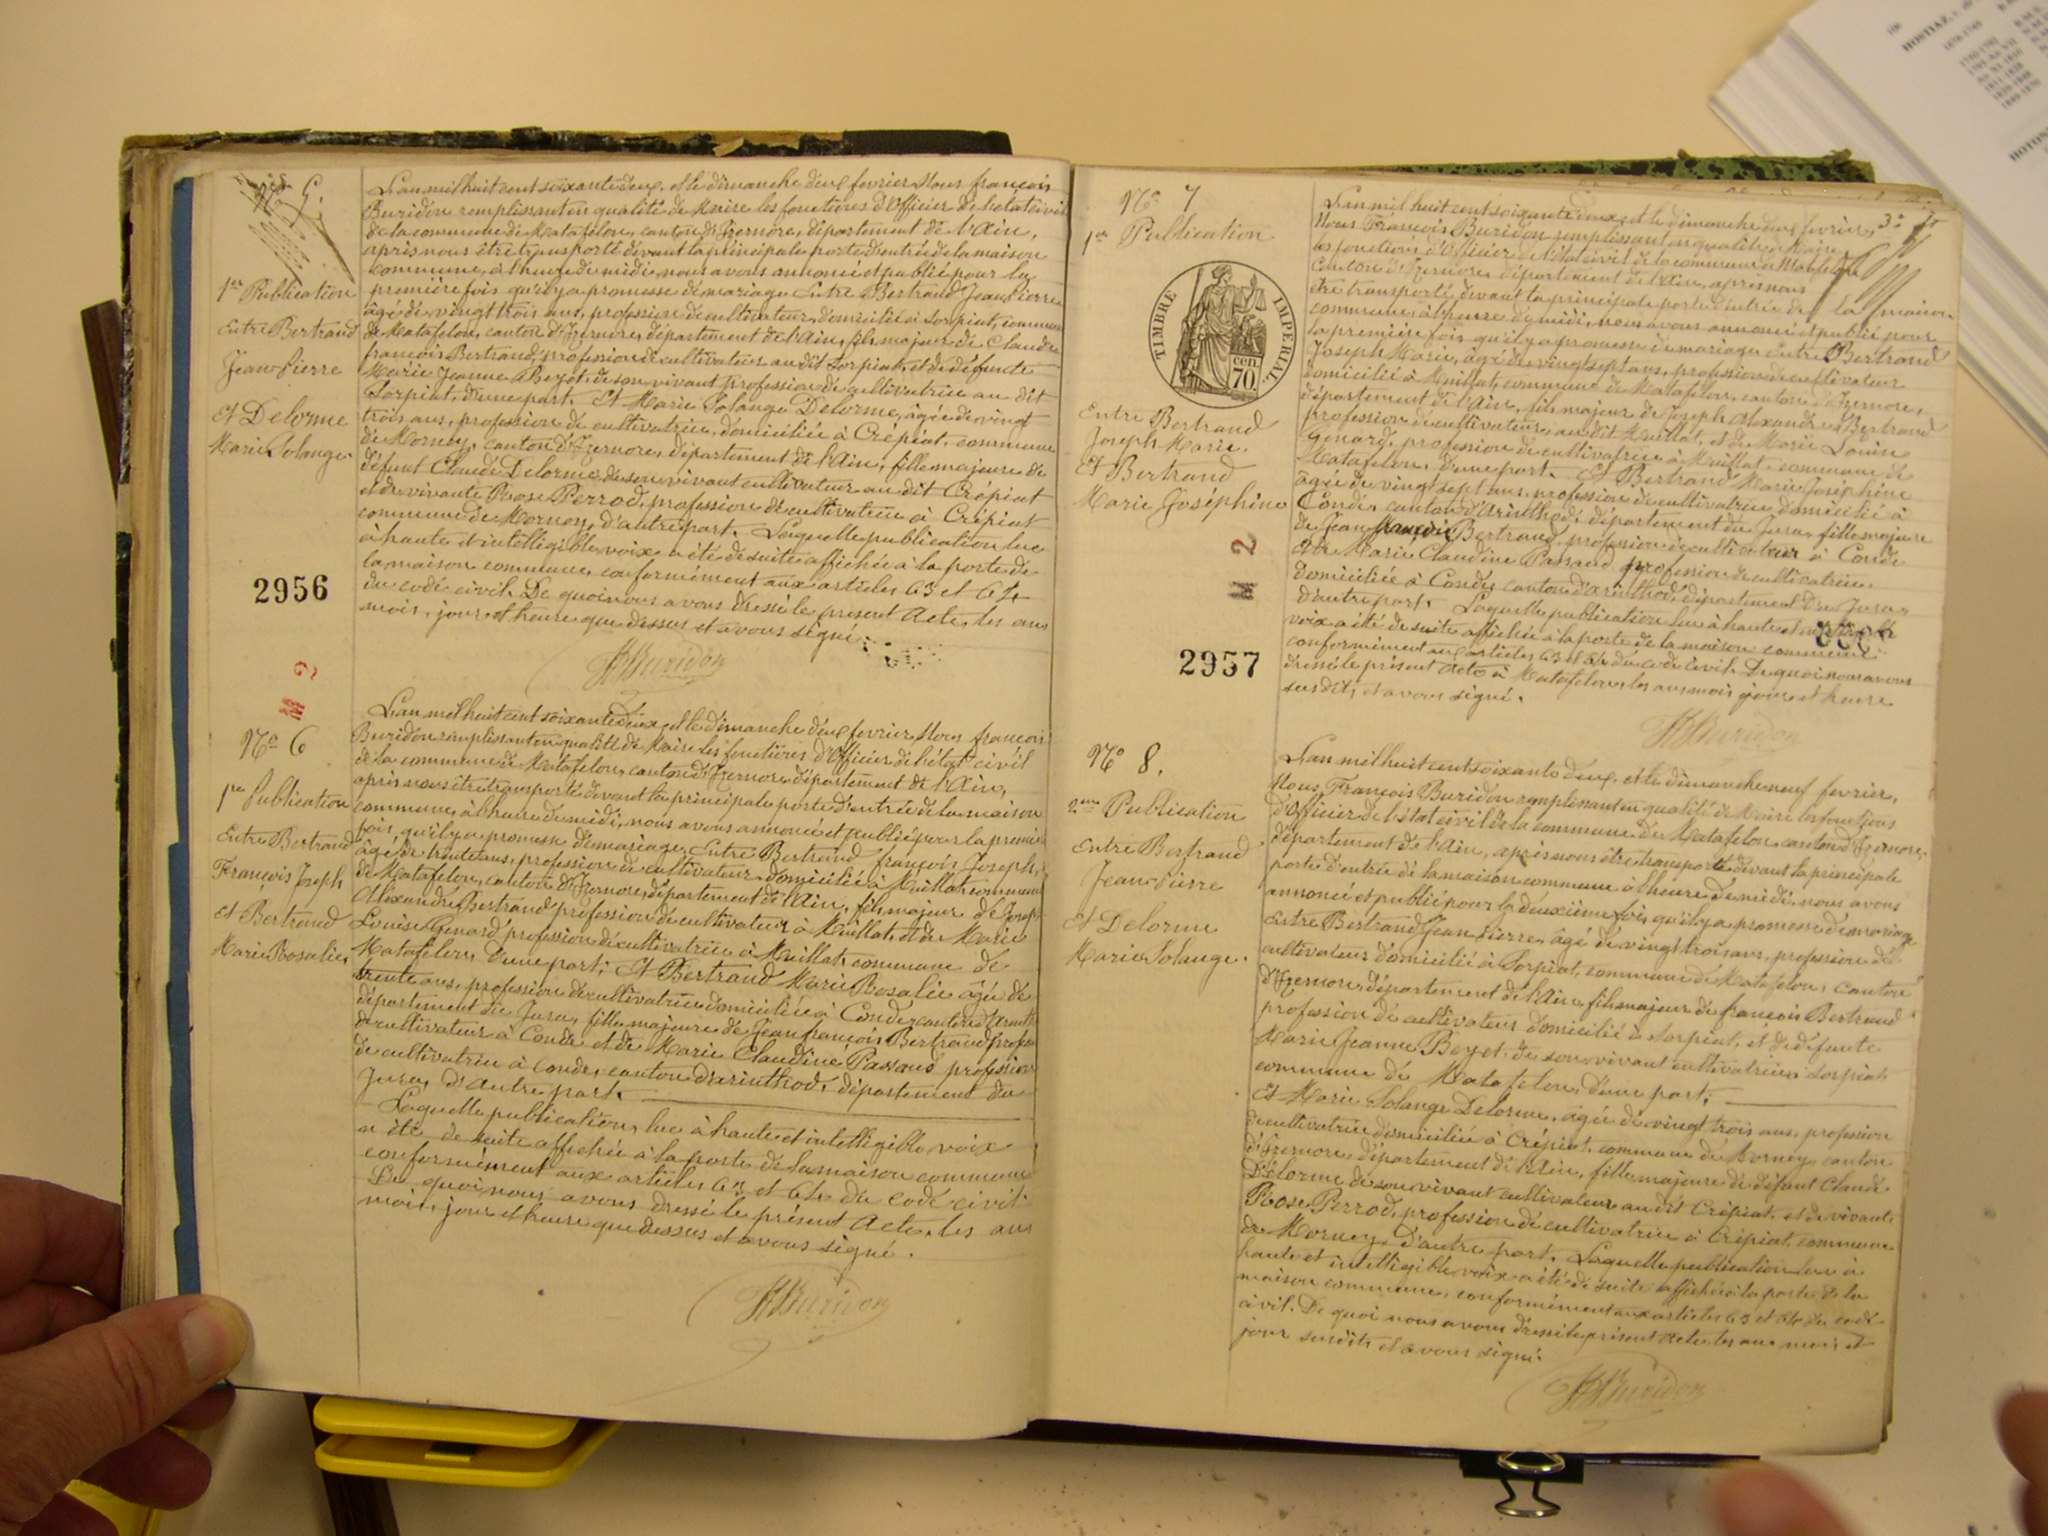 No 5.
1re Publication
Entre Bertrand
Jean Pierre
Et Delorme
Marie Solange
L'an mil huit cent soixante deux, et le dimanche deux fevrier Nous françois
Buridon remplissant en qualité de Maire les fonctions d'Officier de l'état civil
de la commune de Matafelon, canton d'Izernore, département de l'Ain,
après nous être transporté devant la principale porte d'entrée de la maison
commune, à l'heure de midi, nous avons annoncé et publié pour la
première fois qu'il y a promesse de mariage Entre Bertrand Jean Pierre
âgé de vingt trois ans, profession de cultivateur, domicilié à Sorpiat, commune
de Matafelon, canton d'Izernore, département de l'Ain, fils majeur de Claude
françois Bertrand, profession de cultivateur au dit Sorpiat, et de défunte
Marie Jeanne Beyet, de son vivant profession de cultivatrice au dit
Sorpiat, d'une part. Et Marie Solange Delorme, âgée de vingt
trois ans, profession de cultivatrice, domiciliée à Crépiat, commune
de Mornay, canton d'Izernore, département de l'Ain, fille majeure de
défunt Claude Delorme, de son vivant cultivateur au dit Crépiat
et de vivante Rose Perrod, profession de cultivatrice à Crépiat
commune de Mornay, d'autre part. Laquelle publication lue
à haute et intelligible voix a été de suite affichée à la porte de
la maison commune, conformément aux articles 63 et 64
du code civil. De quoi nous avons dressé le present Acte, les an
mois, jour, et heure que dessus et avons signé.
2956
Buridon
No 6
1re Publication
Entre Bertrand
François Joseph
et Bertrand
Marie Rosalie,
L'an mil huit cent soixante deux, et le dimanche deux fevrier, Nous françois
Buridon remplissant en qualité de Maire les fonctions d'Officier de l'état civil
de la commune de Matafelon, canton d'Izernore, département de l'Ain,
après nous être transporté devant la principale porte d'entrée de la maison
commune, à l'heure de midi, nous avons annoncé et publié pour la première
fois, qu'il y a promesse de mariage, Entre Bertrand françois Joseph,
âgé de trente ans, profession de cultivateur domicilié à Muillat, commune
de Matafelon, canton d'Izernore, département de l'Ain, fils majeur de Joseph
Alexandre Bertrand profession de cultivateur à Muillat, et de Marie
Louise Genard profession de cultivatrice à Muillat, commune de
Matafelon, d'une part; Et Bertrand Marie Rosalie âgée de
trente ans, profession de cultivatrice domiciliée à Condes canton d'Arinthod
département du Jura, fille majeure de Jean françois Bertrand profession
de cultivateur à Conde et de Marie Claudine Passaud profession
de cultivatrice à Conde, canton d'arinthod, département du
Jura, d'autre part.
Laquelle publication, lue à haute et intelligible voix
a été de suite affichée à la porte de la maison commune
conformément aux articles 63 et 64 du code civil
De quoi nous avons dressé le présent Acte, les an
mois, jour et heure que dessus et avons signé.
Buridon
No 7
1re Publication
TIMBRE IMPERIAL
70 cen
Entre Bertrand
Joseph Marie.
Et Bertrand
Marie Joséphine
L'an mil huit cent soixante deux, et le dimanche deux fevrier,
Nous François Buridon remplissant en qualité de Maire
les fonctions d'Officier de l'état civil de la commune de Matafelon
canton d'Izernore, département de l'Ain, après nous
être transporté devant la principale porte d'entrée de la maison
commune, à l'heure de midi, nous avons annoncé et publié pour
la première fois qu'il y a promesse de mariage Entre Bertrand
Joseph Marie, âgé de vingt sept ans, profession de cultivateur
domicilié à Muillat, commune de Matafelon, canton d'Izernore,
département de l'Ain, fils majeur de Joseph Alexandre Bertrand
profession de cultivateur, au dit Muillat, et de Marie Louise
Genard, profession de cultivatrice à Muillat, commune de
Matafelon, d'une part. Et Bertrand Marie Joséphine
âgée de vingt sept ans, profession de cultivatrice domicilié à
Condes, canton d'Arinthod, département du Jura, fille majeure
de Jean françois Bertrand, profession de cultivateur à Conde
et de Marie Claudine Passaud profession de cultivatrice
domiciliée à Condes canton d'arinthod, département du Jura,
d'autre part. Laquelle publication, lue à haute et intelligible
voix a été de suite affichée à la porte de la maison commune
conformément aux articles 63 et 64 du code civil. De quoi nous avons
dressé le présent Acte à Matafelon, les an mois jour et heure
susdits, et avons signé.
2957
Buridon
No 8.
2me Publication
Entre Bertrand
Jean Pierre
Et Delorme
Marie Solange.
L'an mil huit cent soixante deux, et le dimanche neuf fevrier,
Nous, François Buridon remplissant en qualité de Maire les fonctions
d'Officier de l'état civil de la commune de Matafelon, canton d'Izernore,
département de l'Ain, après nous être transporté devant la principale
porte d'entrée de la maison commune à l'heure de midi, nous avons
annoncé et publié pour la deuxième fois, qu'il y a promesse de mariage
Entre Bertrand Jean Pierre, âgé de vingt trois ans, profession de
cultivateur domicilié à Sorpiat, commune de Matafelon, canton
d'Izernore, département de l'Ain, fils majeur de françois Bertrand
profession de cultivateur domicilié à Sorpiat, et de défunte
Marie Jeanne Beyet, de son vivant cultivatrice à Sorpiat
commune de Matafelon, d'une part;
Et Marie Solange Delorme, âgée de vingt trois ans, profession
de cultivatrice domiciliée à Crépiat, commune de Mornay, canton
d'Izernore département de l'Ain, fille majeure de défunt Claude
Delorme de son vivant cultivateur au dit Crépiat, et de vivante
Rose Perrod, profession de cultivatrice à Crépiat, commune
de Mornay, d'autre part. Laquelle publication lue à
haute et intelligible voix a été de suite affichée à la porte de la
maison commune, conformément aux articles 63 et 64 du code
civil. De quoi nous avons dressé le présent Acte, les an mois et
jour susdits, et avons signé.
Buridon